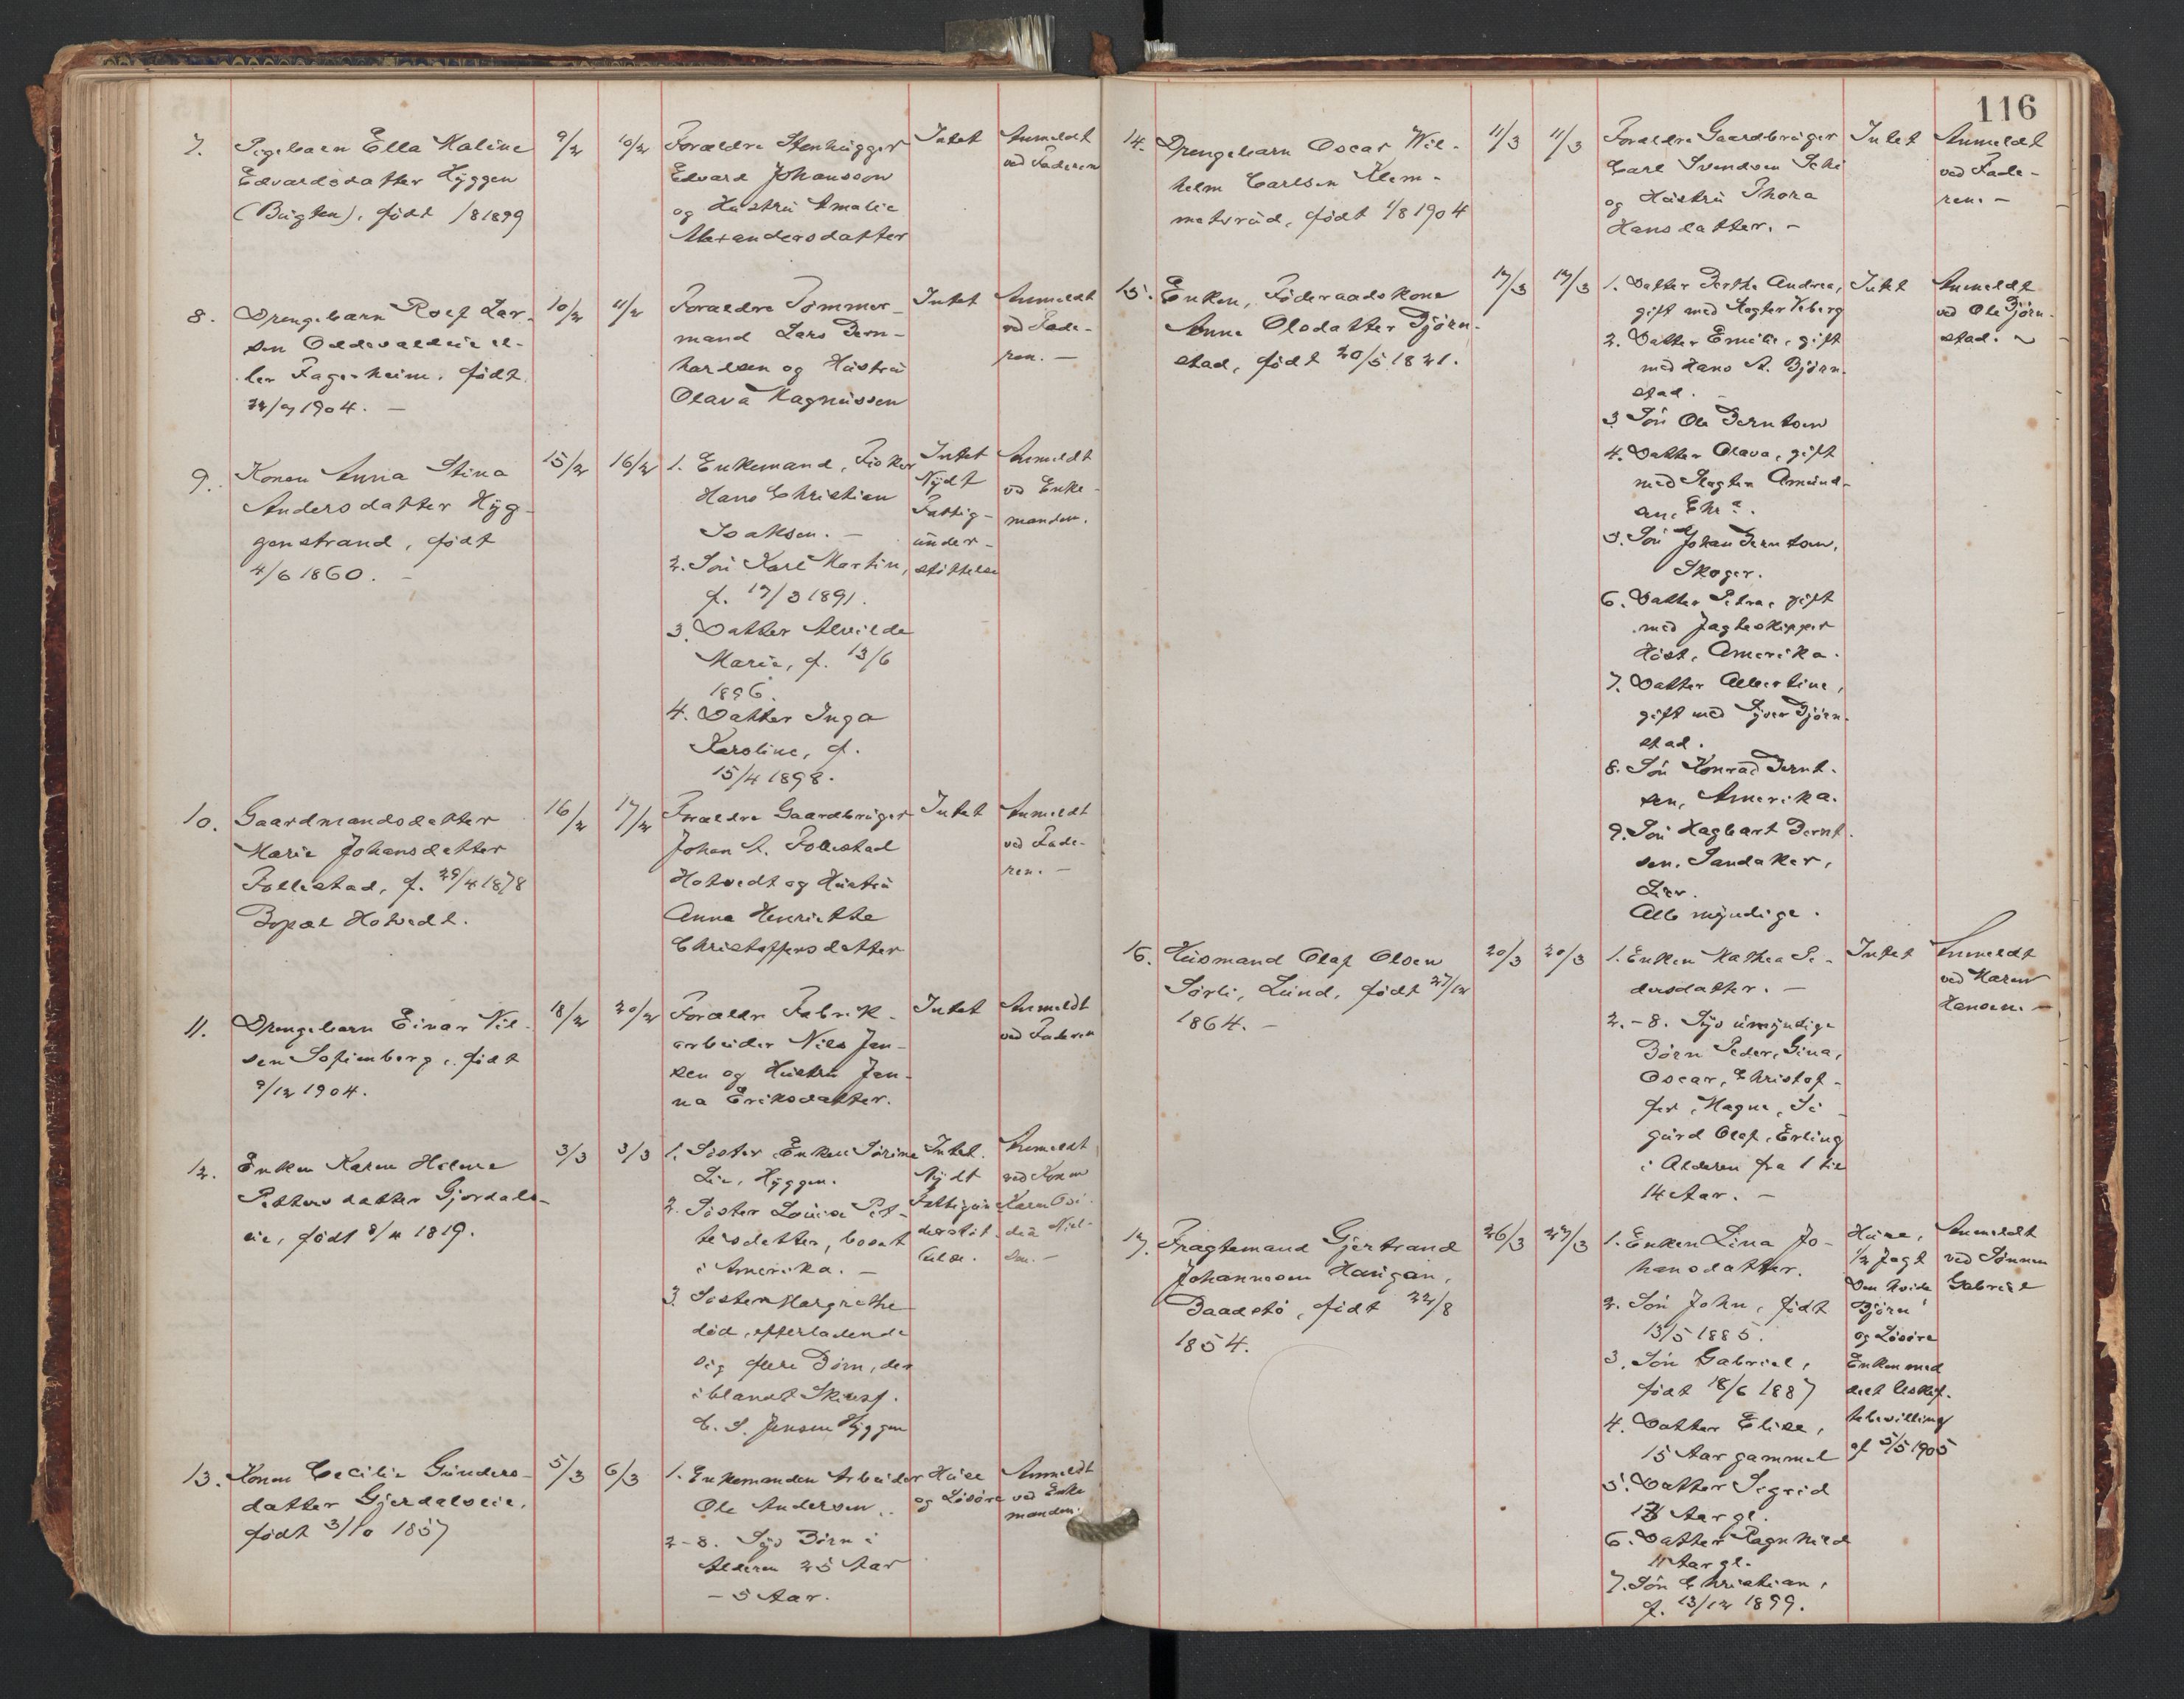 116
7.
Pigebarn Ella Maline
Edvardsdatter Hyggen
(Bugten), født /8 1899
9/2
10/2
Forældre Stenhugger
Edvard Johansson
og Hustru Amalie
Alexandersdatter
Intet
Anmeldt
ved Faderen
8.
Drengebarn Rolf Lar-
sen Oddevaldeie el-
ler Fagerheim, født
22/9 1904. -
10/2
11/2
Forældre Tømmer-
mand Lars Bern-
hardsen og Hustru
Olava Magnussen
Intet
Anmeldt
ved Fade-
ren. -
9.
Konen Anna Stina
Andersdatter Hyg-
genstrand, født
4/6 1860. -
15/2
16/2
1. Enkemand, Fisker
Hans Christian
Isaksen. -
2. Søn Karl Martin,
f. 17/3 1891.
3. Datter Alvilde
Marie, f. 13/6
1896.
4. Datter Inga
Karoline, f.
15/4 1898.
Intet
Nydt
Fattig-
under-
støttelse
Anmeldt
ved Enke-
manden.
10.
Gaardmandsdatter
Marie Johansdatter
Follestad, f. 29/4 1878
Bopæl Hotvedt.
16/2
17/2
Forældre Gaardbruger
Johan A. Follestad
Hotvedt og Hustru
Anna Henriette
Christoffersdatter
Intet
Anmeldt
ved Fade-
ren. -
11.
Drengebarn Einar Nil-
sen Sofienberg, født
9/12 1904.
18/2
20/2
Forældre Fabrik-
arbeider Nils Jen-
sen og Hustru Jen-
na Eriksdatter.
Intet
Anmeldt
ved Faderen
12.
Enken Karen Helene
Pettersdatter Gjerdals-
eie, født 8/11 1819.
3/3
3/3
1. Søster Enken Sørine
Lie, Hyggen.
2. Søster Louise Pet-
tersdatter, bosat
i Amerika. -
3. Søster Margrethe
død, efterladende
sig flere Børn, der
iblandt Skiersf.
C. S. Jensen Hyggen
Intet.
Nydt
Fattigun-
derstøt-
telse.
Anmeldt
ved Konen
Karen
Niel-
sen. -
13.
Konen Cecilie Gunders-
datter Gjerdalseie,
født 3/10 1857
5/3
6/3
1. Enkemanden Arbeider
Ole Andersen.
2-8. Syv Børn i
Alderen 25 Aar
- 5 Aar.
Huse
og Løsøre
Anmeldt
ved Enke
manden.
14.
Drengebarn Oscar Wil-
helm Carlsen Klem-
metsrud, født 1/8 1904
11/3
11/3
Forældre Gaardbruger
Carl Svendsen Schi
og Hustru Thora
Hansdatter. -
Intet
Anmeldt
ved Fade-
ren. -
15.
Enken, Føderaadskone
Anne Olsdatter Bjørn-
stad, født 20/5 1821.
17/3
17/3
1. Datter Berthe Andrea,
gift med Slagter Viberg
2. Datter Emilie, gift
med Hans A. Bjørn-
stad. -
3. Søn Ole Berntsen
4. Datter Olava, gift
med Slagter Amund-
sen, Chr.a.
5. Søn Johan Berntsen,
Skoger.
6. Datter Petra, gift
med Jagteskipper
Høst, Amerika.
7. Datter Albertine,
gift med Syver Bjørn-
stad.
8. Søn Konrad Bernt-
sen, Amerika.
9. Søn Hagbart Bernt-
sen, Sandaker,
Lier.
Alle myndige.
Intet
Anmeldt
ved Ole Bjørn-
stad.
16.
Husmand Olaf Olsen
Sørli, Lund, født 27/12
1864. -
20/3
20/3
1. Enken Mathea Pe-
dersdatter. -
2.-8. Syv umyndige
Børn Peder, Gina,
Oscar, Christof-
fer, Magne, Si-
gurd Olaf, Erling
i Alderen fra 1 til
14 Aar. -
Intet
Anmeldt
ved Maren
Hansen. -
17.
Fragtemand Gjertrand
Johannesen Haugan,
Baadstø, født 22/8
1854.
26/3
27/3
1. Enken Lina Jo-
hansdatter.
2. Søn John, født
13/5 1885.
3. Søn Gabriel,
født 18/6 1887
4. Datter Elise,
15 Aar gammel
5. Datter Sigrid
13 Aar gl.
6. Datter Ragnhild
11 Aar gl.
7. Søn Christian,
f. 13/12 1899.
Huse,
1/2 Jagt
Den hvide
Bjørn
og Løsøre
Enken med-
delt Uskif-
tebevilling
af 5/5 1905
Anmeldt
ved Sønnen
Gabriel